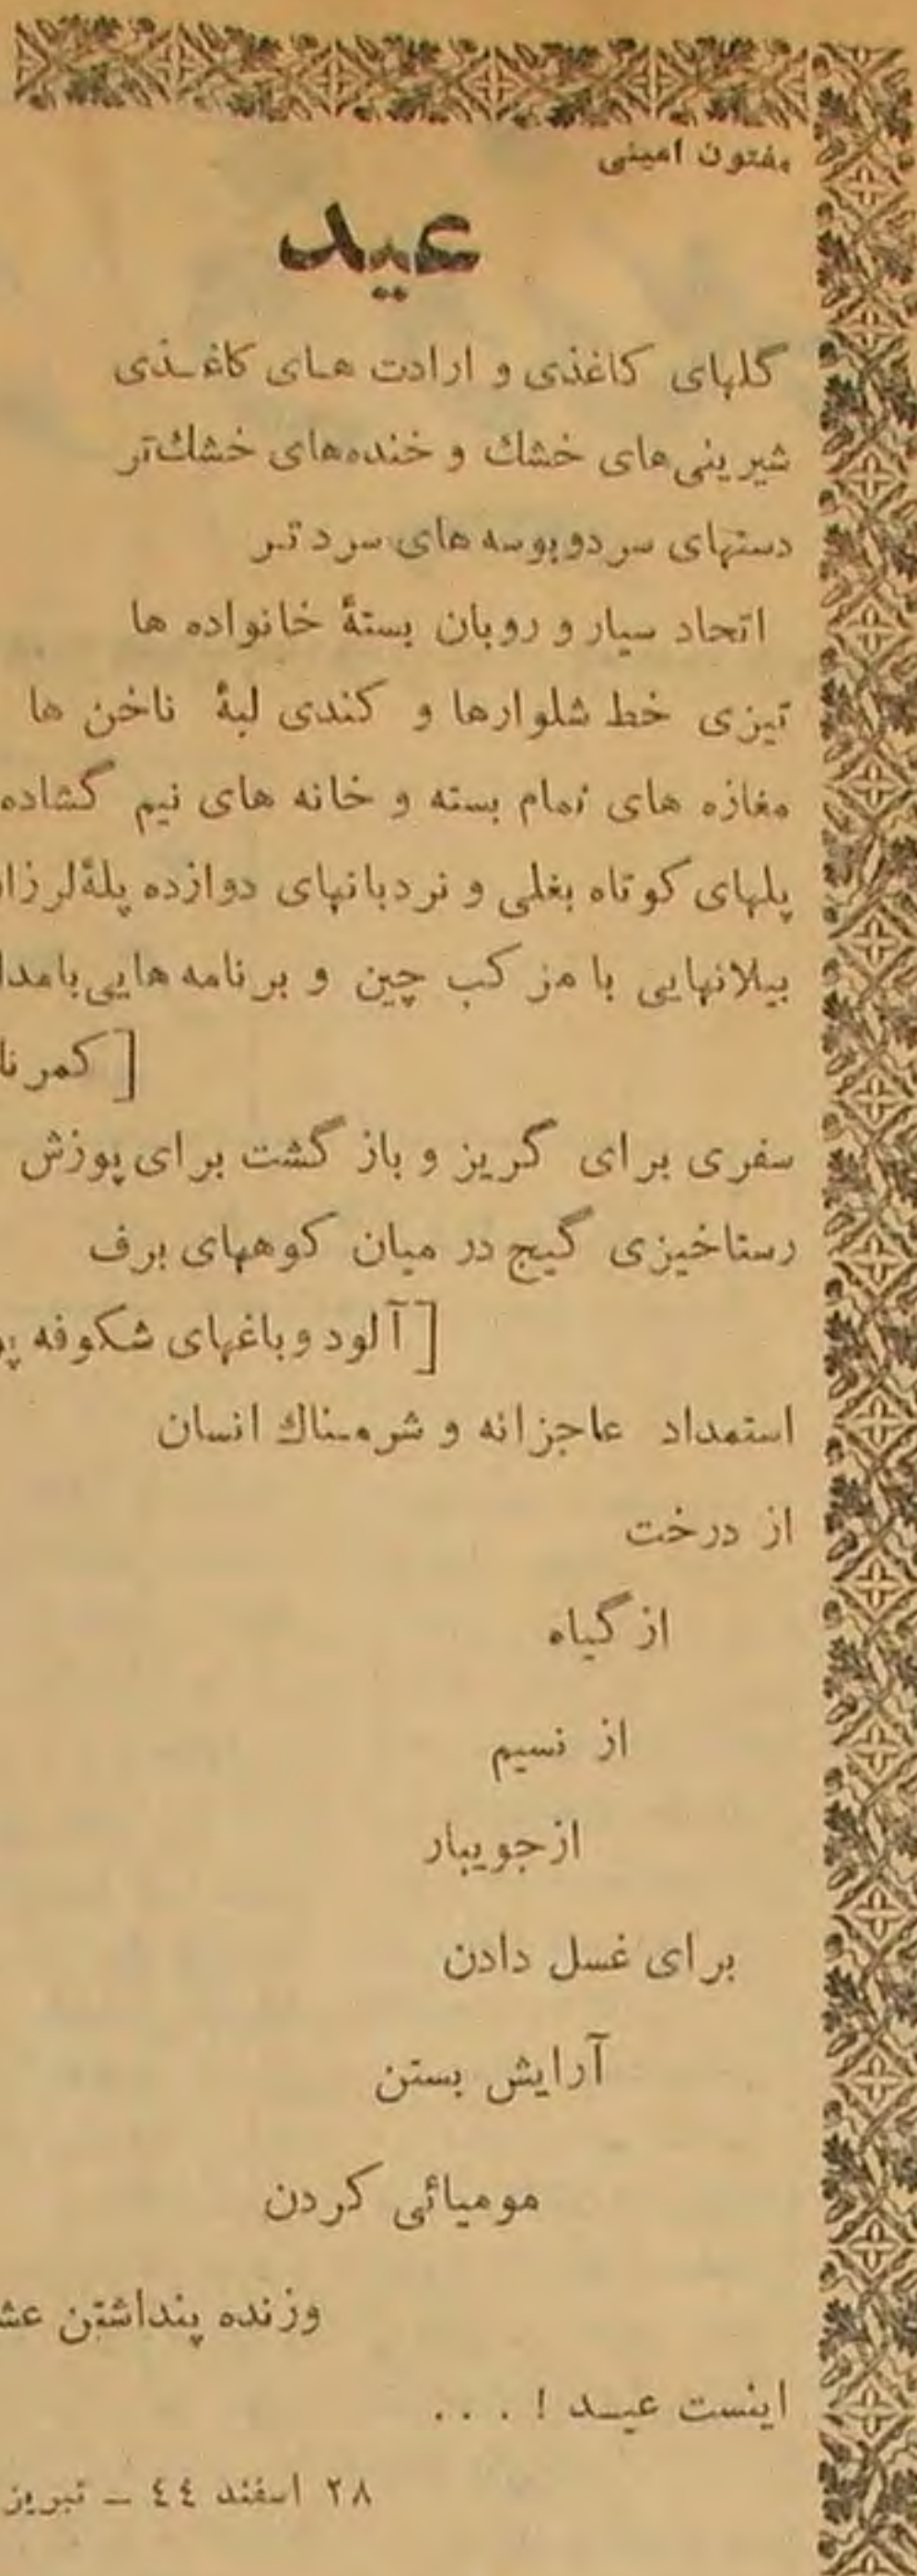 مفتون امینی
عید
گلهای کاغذی و ارادت های کاغذی
شیرینی‌های خشك و خنده‌های خشك‌تر
دستهای سرد و بوسه های سرد تر
اتحاد سیار و روبان بستهٔ خانواده ها
تیزی خط شلوارها و کندی لبهٔ ناخن ها
مغازه های تمام بسته و خانه های نیم گشاده
پلهای کوتاه بغلی و نردبانهای دوازده پلهٔ
بیلانهایی با مرکب چین و برنامه هایی
[
سفری برای گریز و باز گشت برای پوزش
رستاخیزی گیج در میان کوههای برف
[ آلود و باغهای شکوفه
استمداد عاجزانه و شرمناك انسان
از درخت
از گیاه
از نسیم
از جویبار
برای غسل دادن
آرایش بستن
مومیائی کردن
و زنده پنداشتن
اینست عید ! . . .
۲۸ اسفند ٤٤ ــ تبریز